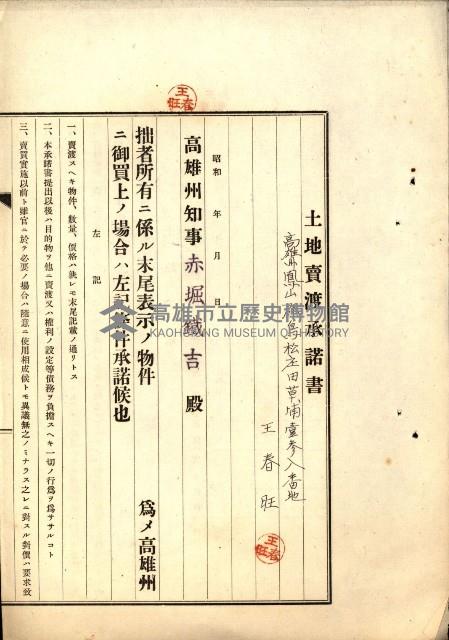 土地賣渡承諾書
高雄州鳳山郡鳥松庄田草埔壹參八番地
王春旺
王春旺
昭和 年 月 日
高雄州知事赤堀鐵吉殿
拙者所有ニ係ル末尾表示ノ物件 為メ高雄州
ニ御買上ノ場合ハ左記條件承諾候也
左記
一、賣渡スヘキ物件、數量、價格ハ孰レモ末尾記載ノ通リトス
二、本承諾書提出以後ハ目的物ヲ他ニ賣渡又ハ權利ノ設定等債務ヲ負擔スヘキ一切ノ行為ヲ為ササルコト
三、賣買實施以前ト雖官ニ於テ必要ノ場合ハ隨意ニ使用相成候トモ異議無之ノミナラス之レニ對スル對價ハ要求致
王春旺
高雄市立歷史博物館
KAOHSIUNG MUSEUM OF HISTORY